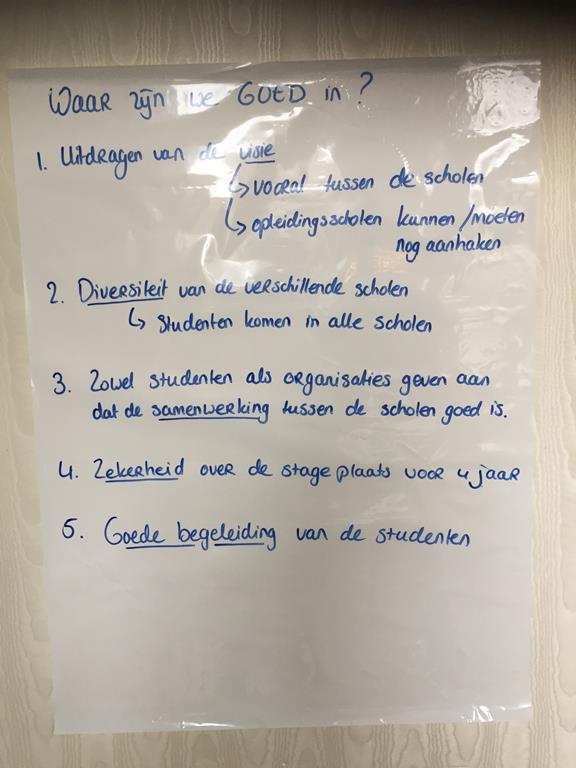 Waar zijn we GOED in?
1. Uitdragen van de visie
↳ vooral tussen de scholen
↳ opleidingsscholen kunnen/moeten
nog aanhaken
2. Diversiteit van de verschillende scholen
↳ Studenten komen in alle scholen
3. Zowel studenten als organisaties geven aan
dat de samenwerking tussen de scholen goed is.
4. Zekerheid over de stageplaats voor 4 jaar
5. Goede begeleiding van de studenten